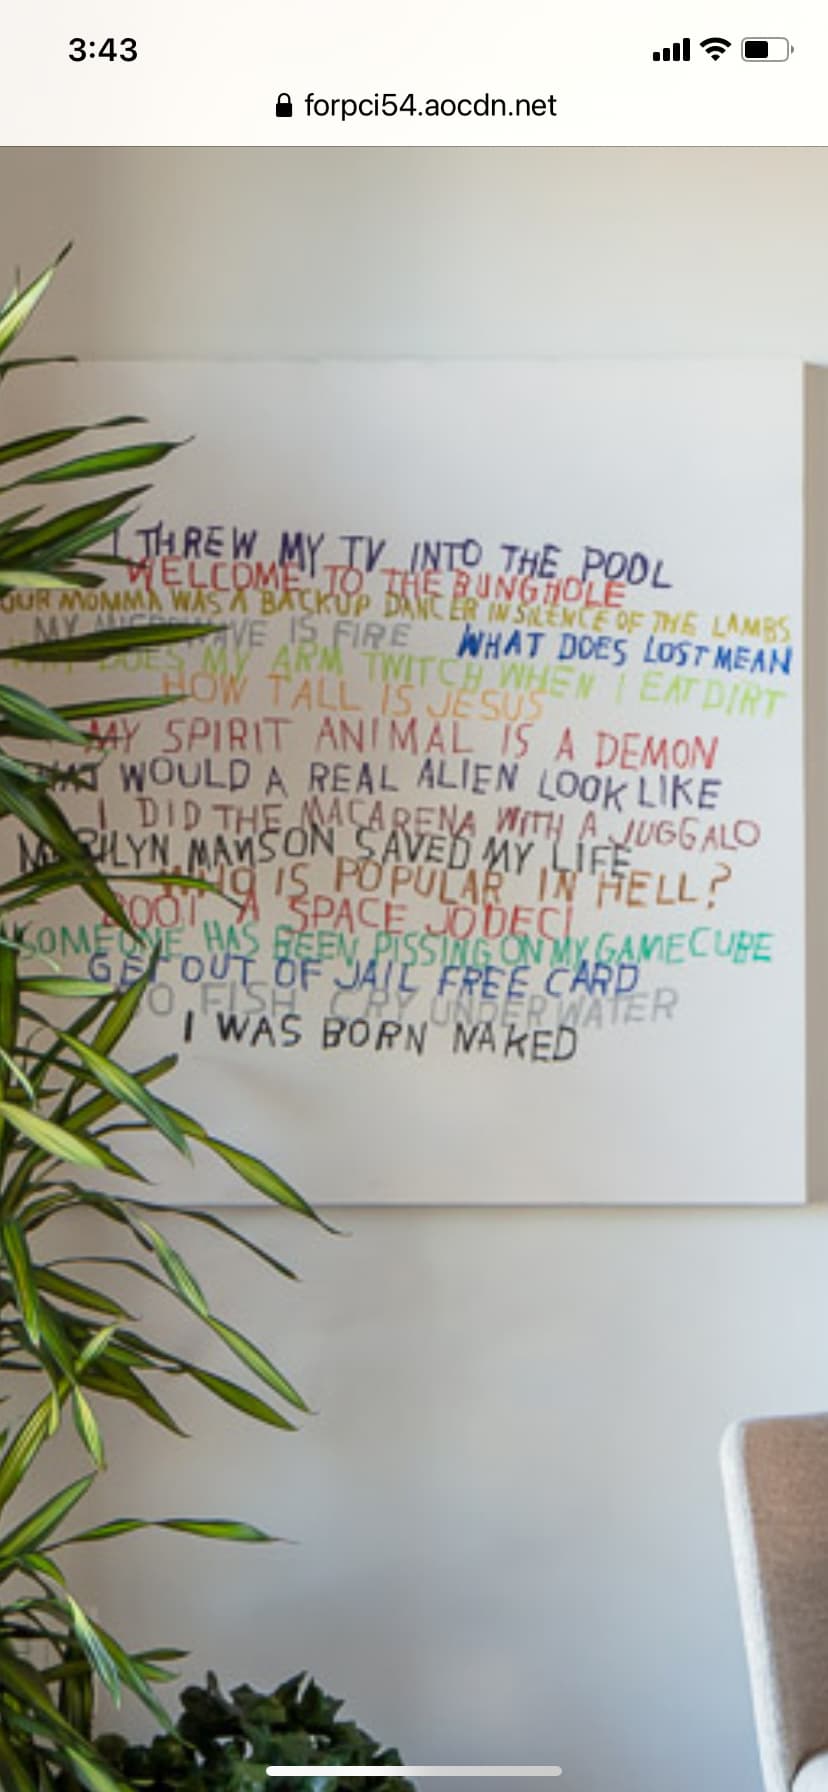 3:43
forpci54.aocdn.net
I THREW MY TV INTO THE POOL
WELCOME TO THE BUNGHOLE
OUR MOMMA WAS A BACKUP DANCER IN SILENCE OF THE LAMBS
MY IS FIRE WHAT DOES LOST MEAN
DOES MY ARM TWITCH WHEN I EAT DIRT
HOW TALL IS JESUS
MY SPIRIT ANIMAL IS A DEMON
WOULD A REAL ALIEN LOOK LIKE
I DID THE MACARENA WITH A JUGGALO
MARILYN MANSON SAVED MY LIFE
WHO IS POPULAR IN HELL?
A SPACE JODECI
SOMEONE HAS BEEN PISSING ON MY GAMECUBE
GET OUT OF JAIL FREE CARD
DO FISH CRY UNDERWATER
I WAS BORN NAKED